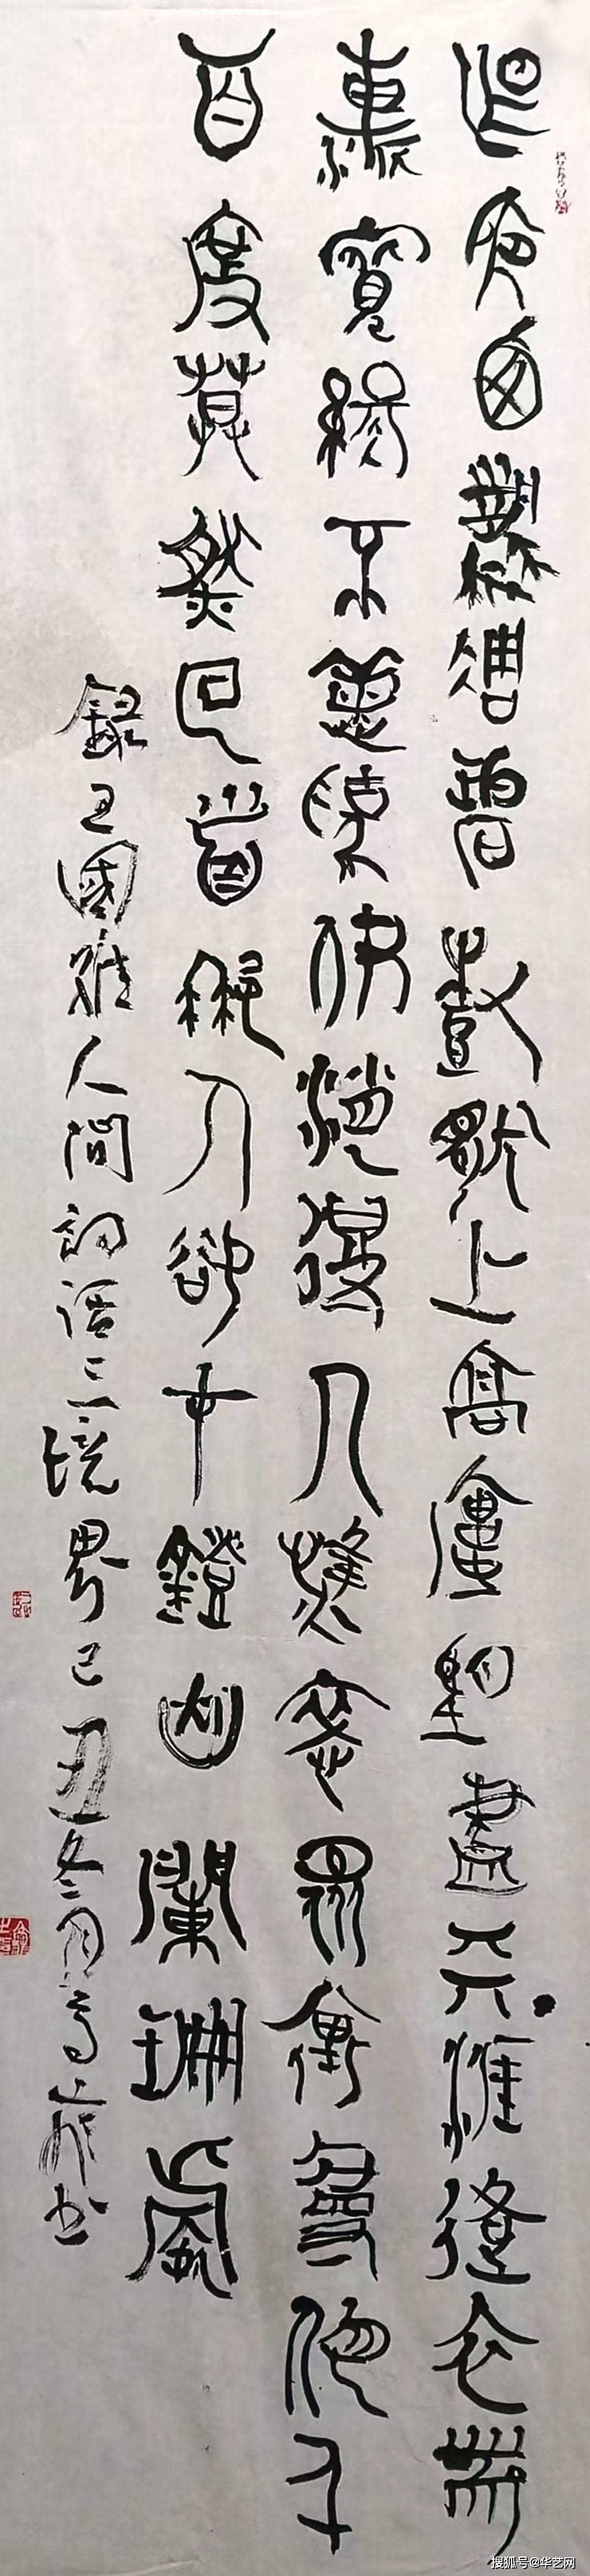 昨夜西風凋碧樹獨上高樓望盡天涯路衣帶
漸寬終不悔為伊消得人憔悴眾裏尋他千
百度驀然回首那人卻在燈火闌珊處
錄王國維人間詞話三境界己丑冬月書
搜狐号@华艺网